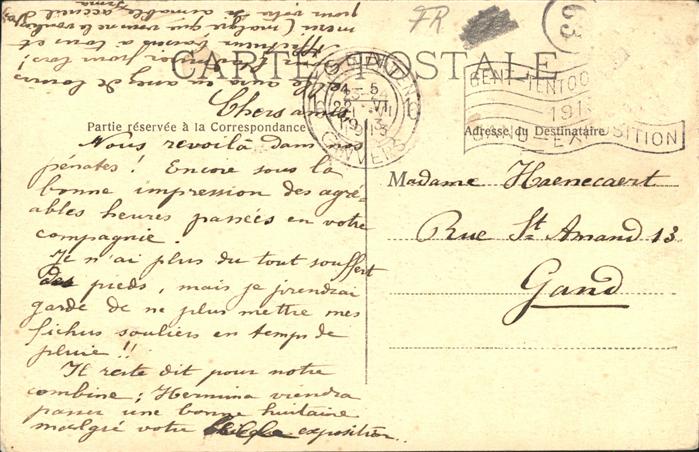 FR
63
CARTE POSTALE
GENT-TENTOO
191
GAND-EXPOSITION
ANVERS
Partie réservée à la Correspondance
Adresse du Destinataire
Chers amis,
Nous revoilà dans nos
pénates! Encore sous la
bonne impression des agré-
ables heures passées en votre
compagnie.
Je n'ai plus du tout souffert
des pieds, mais je prendrai
garde de ne plus mettre mes
fichus souliers en temps de
pluie!!
Il reste dit pour notre
combine; Hermina viendra
passer une bonne huitaine
malgré votre exposition.
merci (malgré que
pour votre aimable accueil
Madame Haenecaert
Rue St Amand 13
Gand